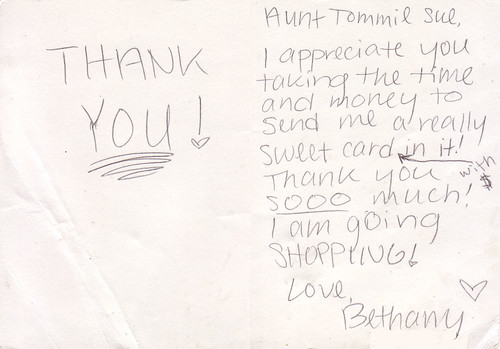 THANK
YOU!
Aunt Tommie Sue,
I appreciate you
taking the time
and money to
send me a really
sweet card in it!
with $
Thank you
SOOO much!
I am going
SHOPPING!
Love,
Bethany